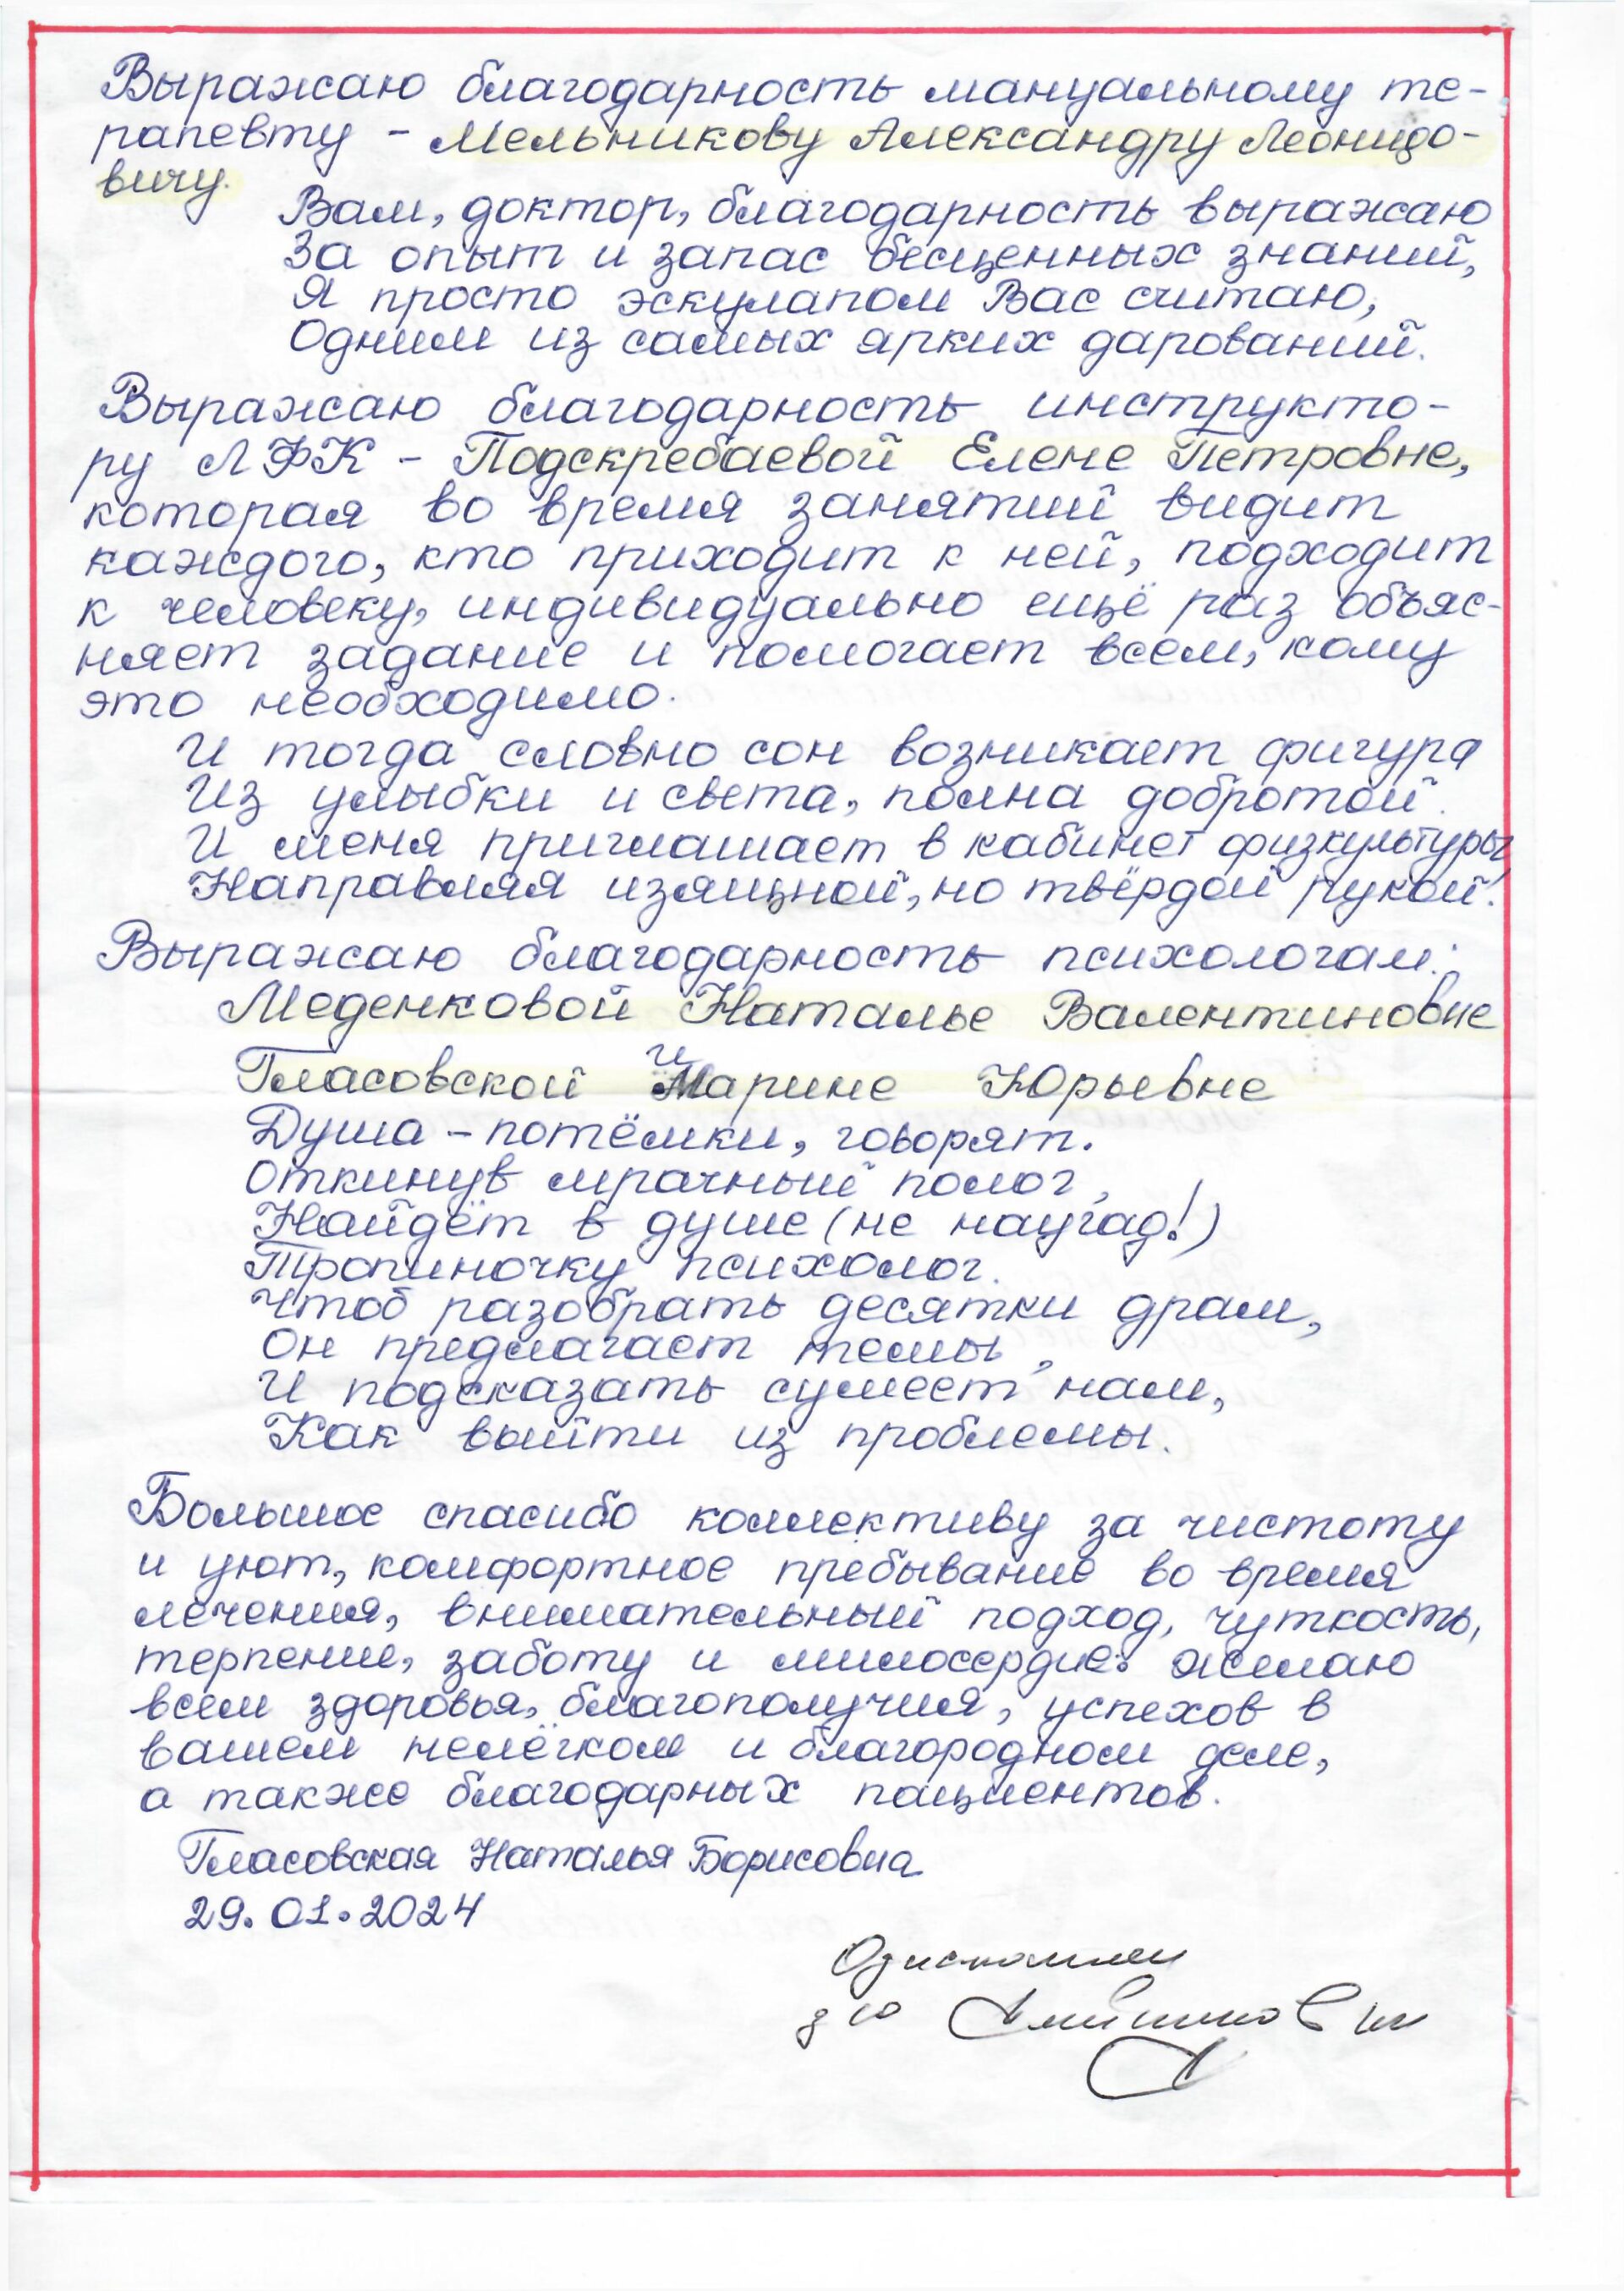 Выражаю благодарность мануальному те-
рапевту - Мельникову Александру Леонидо-
вичу.
Вам, доктор, благодарность выражаю
За опыт и запас бесценных знаний,
Я просто эскулапом Вас считаю,
Одним из самых ярких дарований.
Выражаю благодарность инструкто-
ру ЛФК - Подскребаевой Елене Петровне,
которая во время занятий видит
каждого, кто приходит к ней, подходит
к человеку, индивидуально ещё раз объяс-
няет задание и помогает всем, кому
это необходимо.
И тогда словно сон возникает фигура
Из улыбки и света, полна добротой.
И меня приглашает в кабинет физкультуры,
Направляя изящной, но твёрдой рукой.
Выражаю благодарность психологам:
Меденковой Наталье Валентиновне
и
Гласовской Марине Юрьевне
Душа - потёмки, говорят.
Откинув мрачный полог,
Найдёт в душе (не наугад!)
Тропиночку психолог.
Чтоб разобрать десятки драм,
Он предлагает темы,
И подсказать сумеет нам,
Как выйти из проблемы.
Большое спасибо коллективу за чистоту
и уют, комфортное пребывание во время
лечения, внимательный подход, чуткость,
терпение, заботу и милосердие. Желаю
всем здоровья, благополучия, успехов в
вашем нелёгком и благородном деле,
а также благодарных пациентов.
Гласовская Наталья Борисовна
29.01.2024